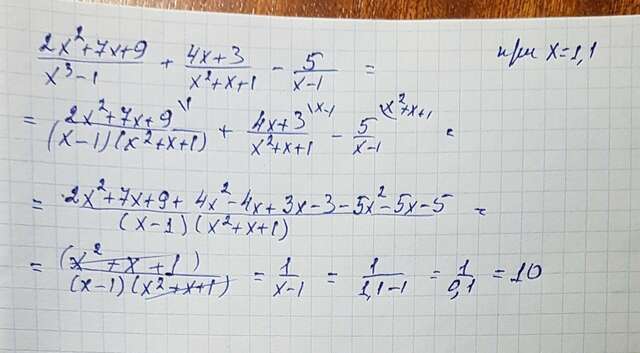 (2x²+7x+9)/(x³-1) + (4x+3)/(x²+x+1) - 5/(x-1) = при x=1,1
= (2x²+7x+9)\1/((x-1)(x²+x+1)) + (4x+3)\x-1/(x²+x+1) - 5\x²+x+1/(x-1) =
= (2x²+7x+9+4x²-4x+3x-3-5x²-5x-5)/((x-1)(x²+x+1)) =
= (x²+x+1)/((x-1)(x²+x+1)) = 1/(x-1) = 1/(1,1-1) = 1/0,1 = 10